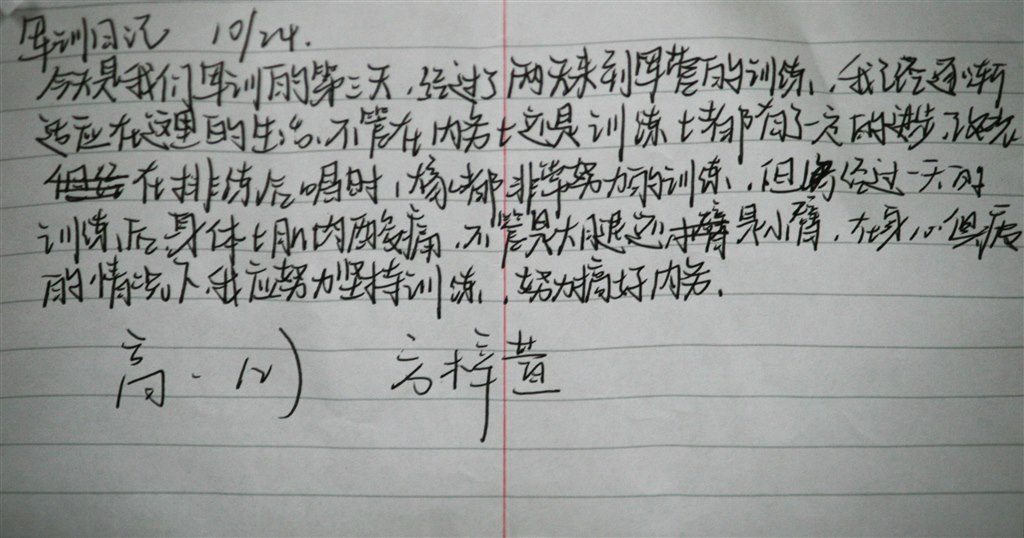 军训日记 10/24.
今天是我们军训的第三天,经过了两天来到军营的训练,我已经逐渐
适应在这里的生活.不管在内务上还是训练上都有了一定的进步,
在排练后唱时,大家都非常努力的训练,但经过一天的
训练后身体上肌肉酸痛,不管是大腿还是小臂,在身心俱疲
的情况下,我应努力坚持训练,努力搞好内务.
高一 12) 方梓萱